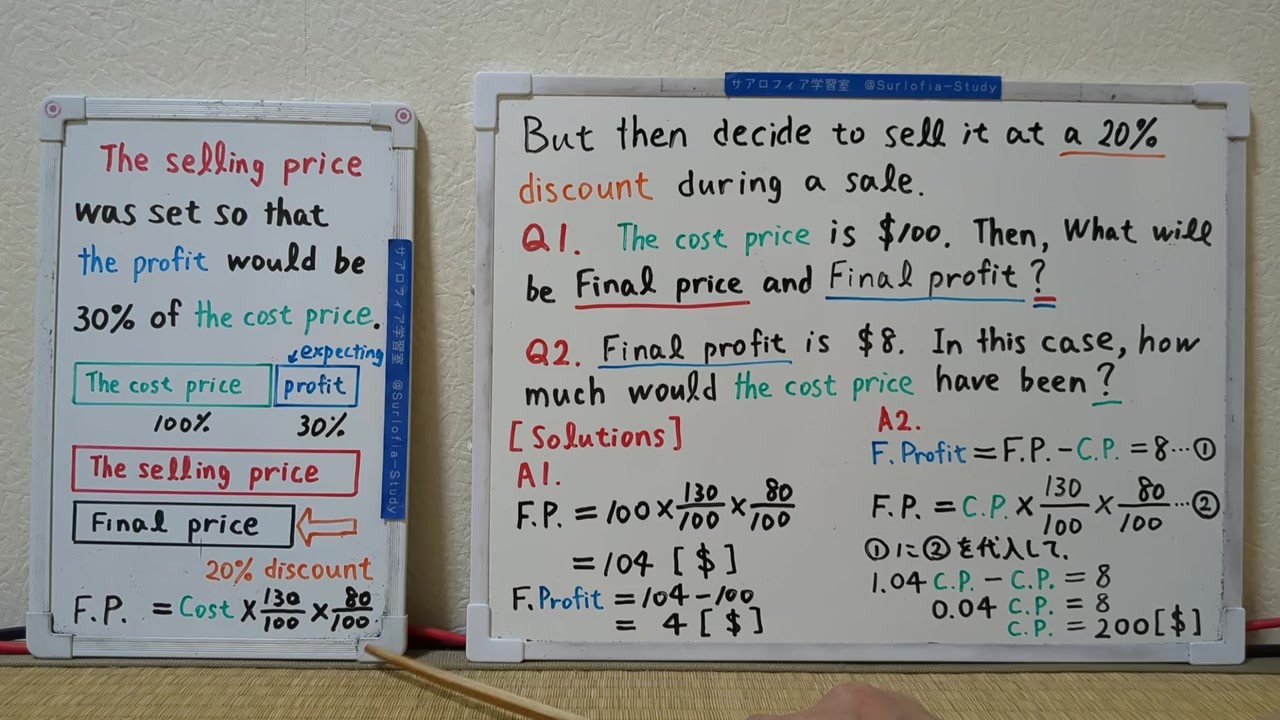 The selling price
was set so that
the profit would be
30% of the cost price.
↙expecting
The cost price profit
100% 30%
The selling price
Final price ⇐
20% discount
F.P. = Cost × 130/100 × 80/100
サアロフィア学習室 @Surlofia-Study
サアロフィア学習室 @Surlofia-Study
But then decide to sell it at a 20%
discount during a sale.
Q1. The cost price is $100. Then, What will
be Final price and Final profit?
Q2. Final profit is $8. In this case, how
much would the cost price have been?
[Solutions]
A1.
F.P. = 100 × 130/100 × 80/100
= 104 [$]
F.Profit = 104 - 100
= 4 [$]
A2.
F.Profit = F.P. - C.P. = 8 … ①
F.P. = C.P. × 130/100 × 80/100 … ②
①に②を代入して.
1.04 C.P. - C.P. = 8
0.04 C.P. = 8
C.P. = 200 [$]